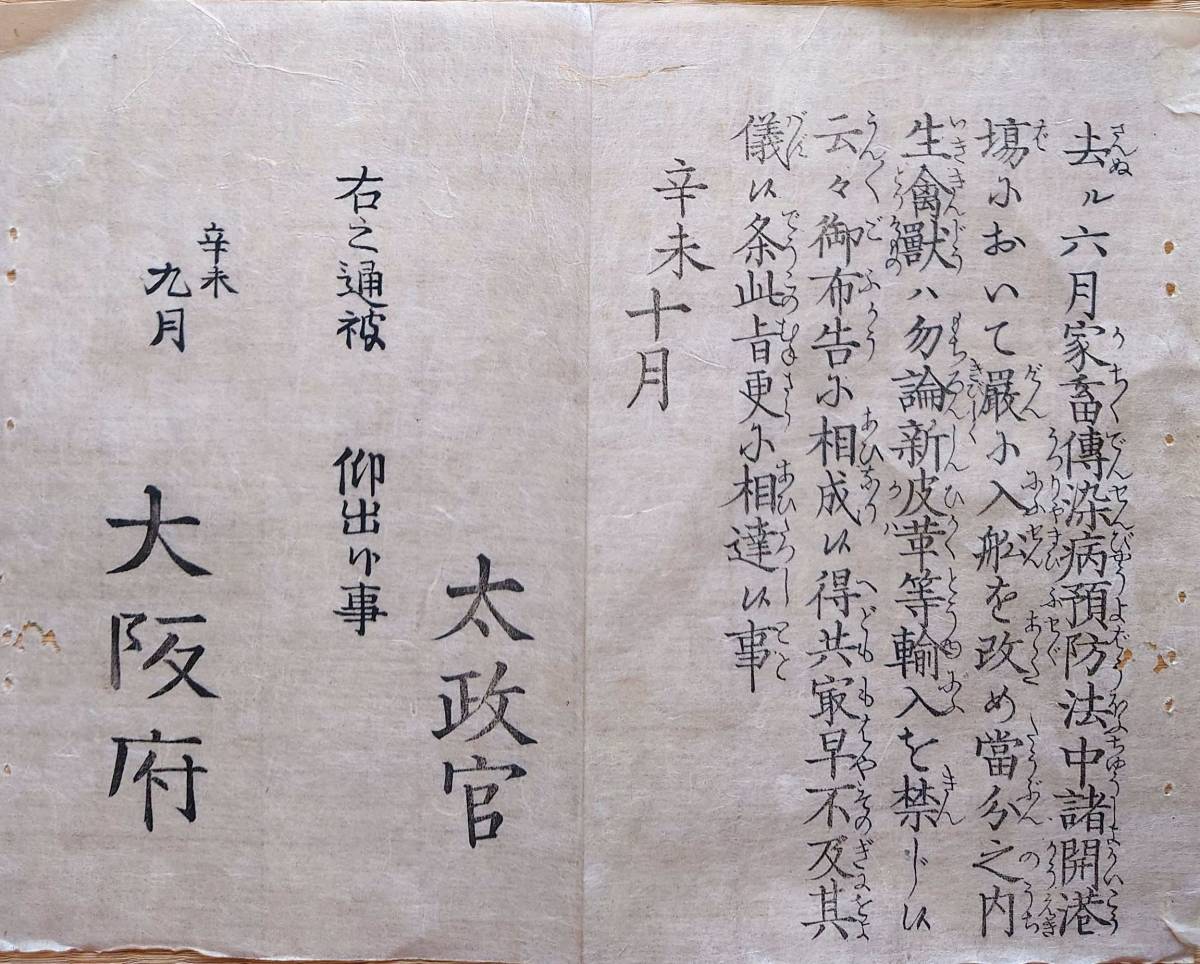 去ル六月家畜傳染病預防法中諸開港
塲において嚴に入船を改め當分之内
生禽獸ハ勿論新皮革等輸入を禁じ候
云々御布告に相成候得共最早不及其
儀候条此旨更に相達候事
辛未十月
太政官
右之通被 仰出候事
辛未
九月
大阪府